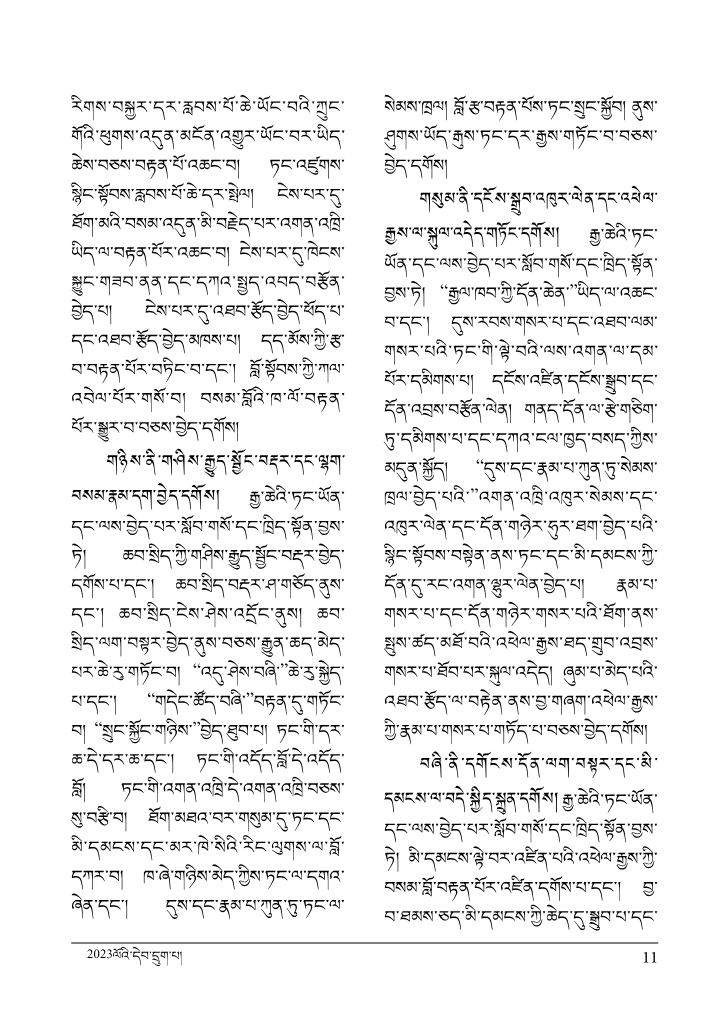 རིགས་བསྐྱར་དར་རླབས་པོ་ཆེ་ཡོང་བའི་ཀྲུང་
གོའི་ཕུགས་འདུན་མངོན་འགྱུར་ཡོང་བར་ཡིད་
ཆེས་བཅས་བརྟན་པོ་འཆང་བ། ཏང་འཛུགས་
སྙིང་སྟོབས་རླབས་པོ་ཆེ་དར་སྤེལ། ངེས་པར་དུ་
ཐོག་མའི་བསམ་འདུན་མི་བརྗེད་པར་འགན་འཁྲི་
ཡིད་ལ་བརྟན་པོར་འཆང་བ། ངེས་པར་དུ་ཁེངས་
སྐྱུང་གཟབ་ནན་དང་དཀའ་སྤྱད་འབད་བརྩོན་
བྱེད་པ། ངེས་པར་དུ་འཐབ་རྩོད་བྱེད་ཕོད་པ་
དང་འཐབ་རྩོད་བྱེད་མཁས་པ། དད་མོས་ཀྱི་རྩ་
བ་བརྟན་པོར་བཏིང་བ་དང་། བློ་སྟོབས་ཀྱི་ཀལ་
འབེལ་པོར་གསོ་བ། བསམ་བློའི་ཁ་ལོ་བརྟན་
པོར་སྒྱུར་བ་བཅས་བྱེད་དགོས།
གཉིས་ནི་གཤིས་རྒྱུད་སྦྱོང་བརྡར་དང་ལྷག་
བསམ་རྣམ་དག་བྱེད་དགོས། རྒྱ་ཆེའི་ཏང་ཡོན་
དང་ལས་བྱེད་པར་སློབ་གསོ་དང་ཁྲིད་སྟོན་བྱས་
ཏེ། ཆབ་སྲིད་ཀྱི་གཤིས་རྒྱུད་སྦྱོང་བརྡར་བྱེད་
དགོས་པ་དང་། ཆབ་སྲིད་བརྡར་ཤ་གཅོད་ནུས་
དང་། ཆབ་སྲིད་ངེས་ཤེས་འདྲོང་ནུས། ཆབ་
སྲིད་ལག་བསྟར་བྱེད་ནུས་བཅས་རྒྱུན་ཆད་མེད་
པར་ཆེ་རུ་གཏོང་བ། “འདུ་ཤེས་བཞི་”ཆེ་རུ་སྐྱེད་
པ་དང་། “གདེང་ཚོད་བཞི་”བརྟན་དུ་གཏོང་
བ། “སྲུང་སྐྱོང་གཉིས་”བྱེད་ཐུབ་པ། ཏང་གི་དར་
ཆ་དེ་དར་ཆ་དང་། ཏང་གི་འདོད་བློ་དེ་འདོད་
བློ། ཏང་གི་འགན་འཁྲི་དེ་འགན་འཁྲི་བཅས་
སུ་བརྩི་བ། ཐོག་མཐའ་བར་གསུམ་དུ་ཏང་དང་
མི་དམངས་དང་མར་ཁེ་སིའི་རིང་ལུགས་ལ་བློ་
དཀར་བ། ཁ་ཞེ་གཉིས་མེད་ཀྱིས་ཏང་ལ་དགའ་
ཞེན་དང་། དུས་དང་རྣམ་པ་ཀུན་ཏུ་ཏང་ལ་
སེམས་ཁྲལ། བློ་རྩ་བརྟན་པོས་ཏང་སྲུང་སྐྱོབ། ནུས་
ཤུགས་ཡོད་རྒུས་ཏང་དར་རྒྱས་གཏོང་བ་བཅས་
བྱེད་དགོས།
གསུམ་ནི་དངོས་སྒྲུབ་འཁུར་ལེན་དང་འཕེལ་
རྒྱས་ལ་སྐུལ་འདེད་གཏོང་དགོས། རྒྱ་ཆེའི་ཏང་
ཡོན་དང་ལས་བྱེད་པར་སློབ་གསོ་དང་ཁྲིད་སྟོན་
བྱས་ཏེ། “རྒྱལ་ཁབ་ཀྱི་དོན་ཆེན་”ཡིད་ལ་འཆང་
བ་དང་། དུས་རབས་གསར་པ་དང་འཐབ་ལམ་
གསར་པའི་ཏང་གི་ལྟེ་བའི་ལས་འགན་ལ་དམ་
པོར་དམིགས་པ། དངོས་འཛིན་དངོས་སྒྲུབ་དང་
དོན་འབྲས་བརྩོན་ལེན། གནད་དོན་ལ་རྩེ་གཅིག་
ཏུ་དམིགས་པ་དང་དཀའ་ངལ་ཁྱད་བསད་ཀྱིས་
མདུན་སྐྱོད། “དུས་དང་རྣམ་པ་ཀུན་ཏུ་སེམས་
ཁྲལ་བྱེད་པའི་”འགན་འཁྲི་འཁུར་སེམས་དང་
འཁུར་ལེན་དང་དོན་གཉེར་ཧུར་ཐག་བྱེད་པའི་
སྙིང་སྟོབས་བསྟེན་ནས་ཏང་དང་མི་དམངས་ཀྱི་
དོན་དུ་རང་འགན་ལྷུར་ལེན་བྱེད་པ། རྣམ་པ་
གསར་པ་དང་དོན་གཉེར་གསར་པའི་ཐོག་ནས་
སྤུས་ཚད་མཐོ་བའི་འཕེལ་རྒྱས་ཐད་གྲུབ་འབྲས་
གསར་པ་ཐོབ་པར་སྐུལ་འདེད། ཞུམ་པ་མེད་པའི་
འཐབ་རྩོད་ལ་བརྟེན་ནས་བྱ་གཞག་འཕེལ་རྒྱས་
ཀྱི་རྣམ་པ་གསར་པ་གཏོད་པ་བཅས་བྱེད་དགོས།
བཞི་ནི་དགོངས་དོན་ལག་བསྟར་དང་མི་
དམངས་ལ་བདེ་སྐྱིད་སྐྲུན་དགོས། རྒྱ་ཆེའི་ཏང་ཡོན་
དང་ལས་བྱེད་པར་སློབ་གསོ་དང་ཁྲིད་སྟོན་བྱས་
ཏེ། མི་དམངས་ལྟེ་བར་འཛིན་པའི་འཕེལ་རྒྱས་ཀྱི་
བསམ་བློ་བརྟན་པོར་འཛིན་དགོས་པ་དང་། བྱ་
བ་ཐམས་ཅད་མི་དམངས་ཀྱི་ཆེད་དུ་སྒྲུབ་པ་དང་
2023ལོའི་དེབ་དྲུག་པ།
11